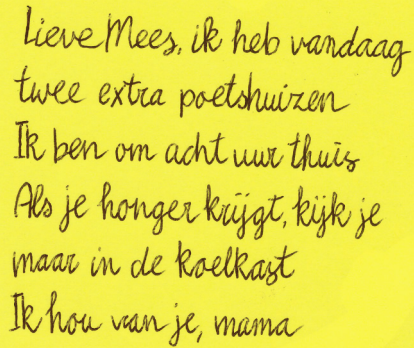 Lieve Mees, ik heb vandaag
twee extra poetshuizen
Ik ben om acht uur thuis
Als je honger krijgt, kijk je
maar in de koelkast
Ik hou van je, mama